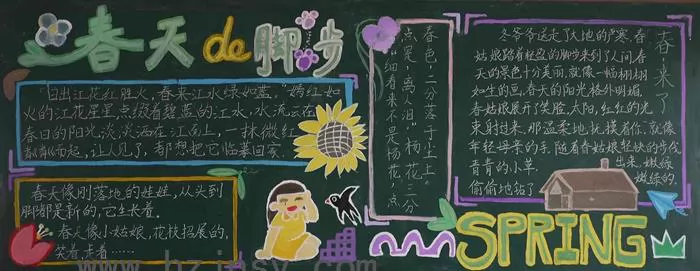 春天de脚步
"日出江花红胜火，春来江水绿如蓝。"嫣红如
火的江花星星点缀着碧蓝的江水，水流云在
春日的阳光淡淡洒在江面上，一抹微红
而起，让人见了，都想把它临摹回家。
春天像刚落地的娃娃，从头到
脚都是新的，它生长着。
春天像小姑娘，花枝招展的，
笑着，走着……
"细看来不是杨花，点
点是，离人泪"杨花，三分
春色，二分落于尘上"
春来了
冬爷爷送走了大地的严寒，春
姑娘踏着轻盈的脚步来到了人间春
天的景色十分美丽，就像一幅栩栩
如生的画，春天的阳光格外明媚，
春姑娘展开了笑脸，太阳，红红的光
束射过来，那温柔地，抚摸着你，就像
年轻母亲的手，随着春姑娘轻快的步伐
青青的小草，
偷偷地钻了
出来，嫩绿
嫩绿的.
SPRING